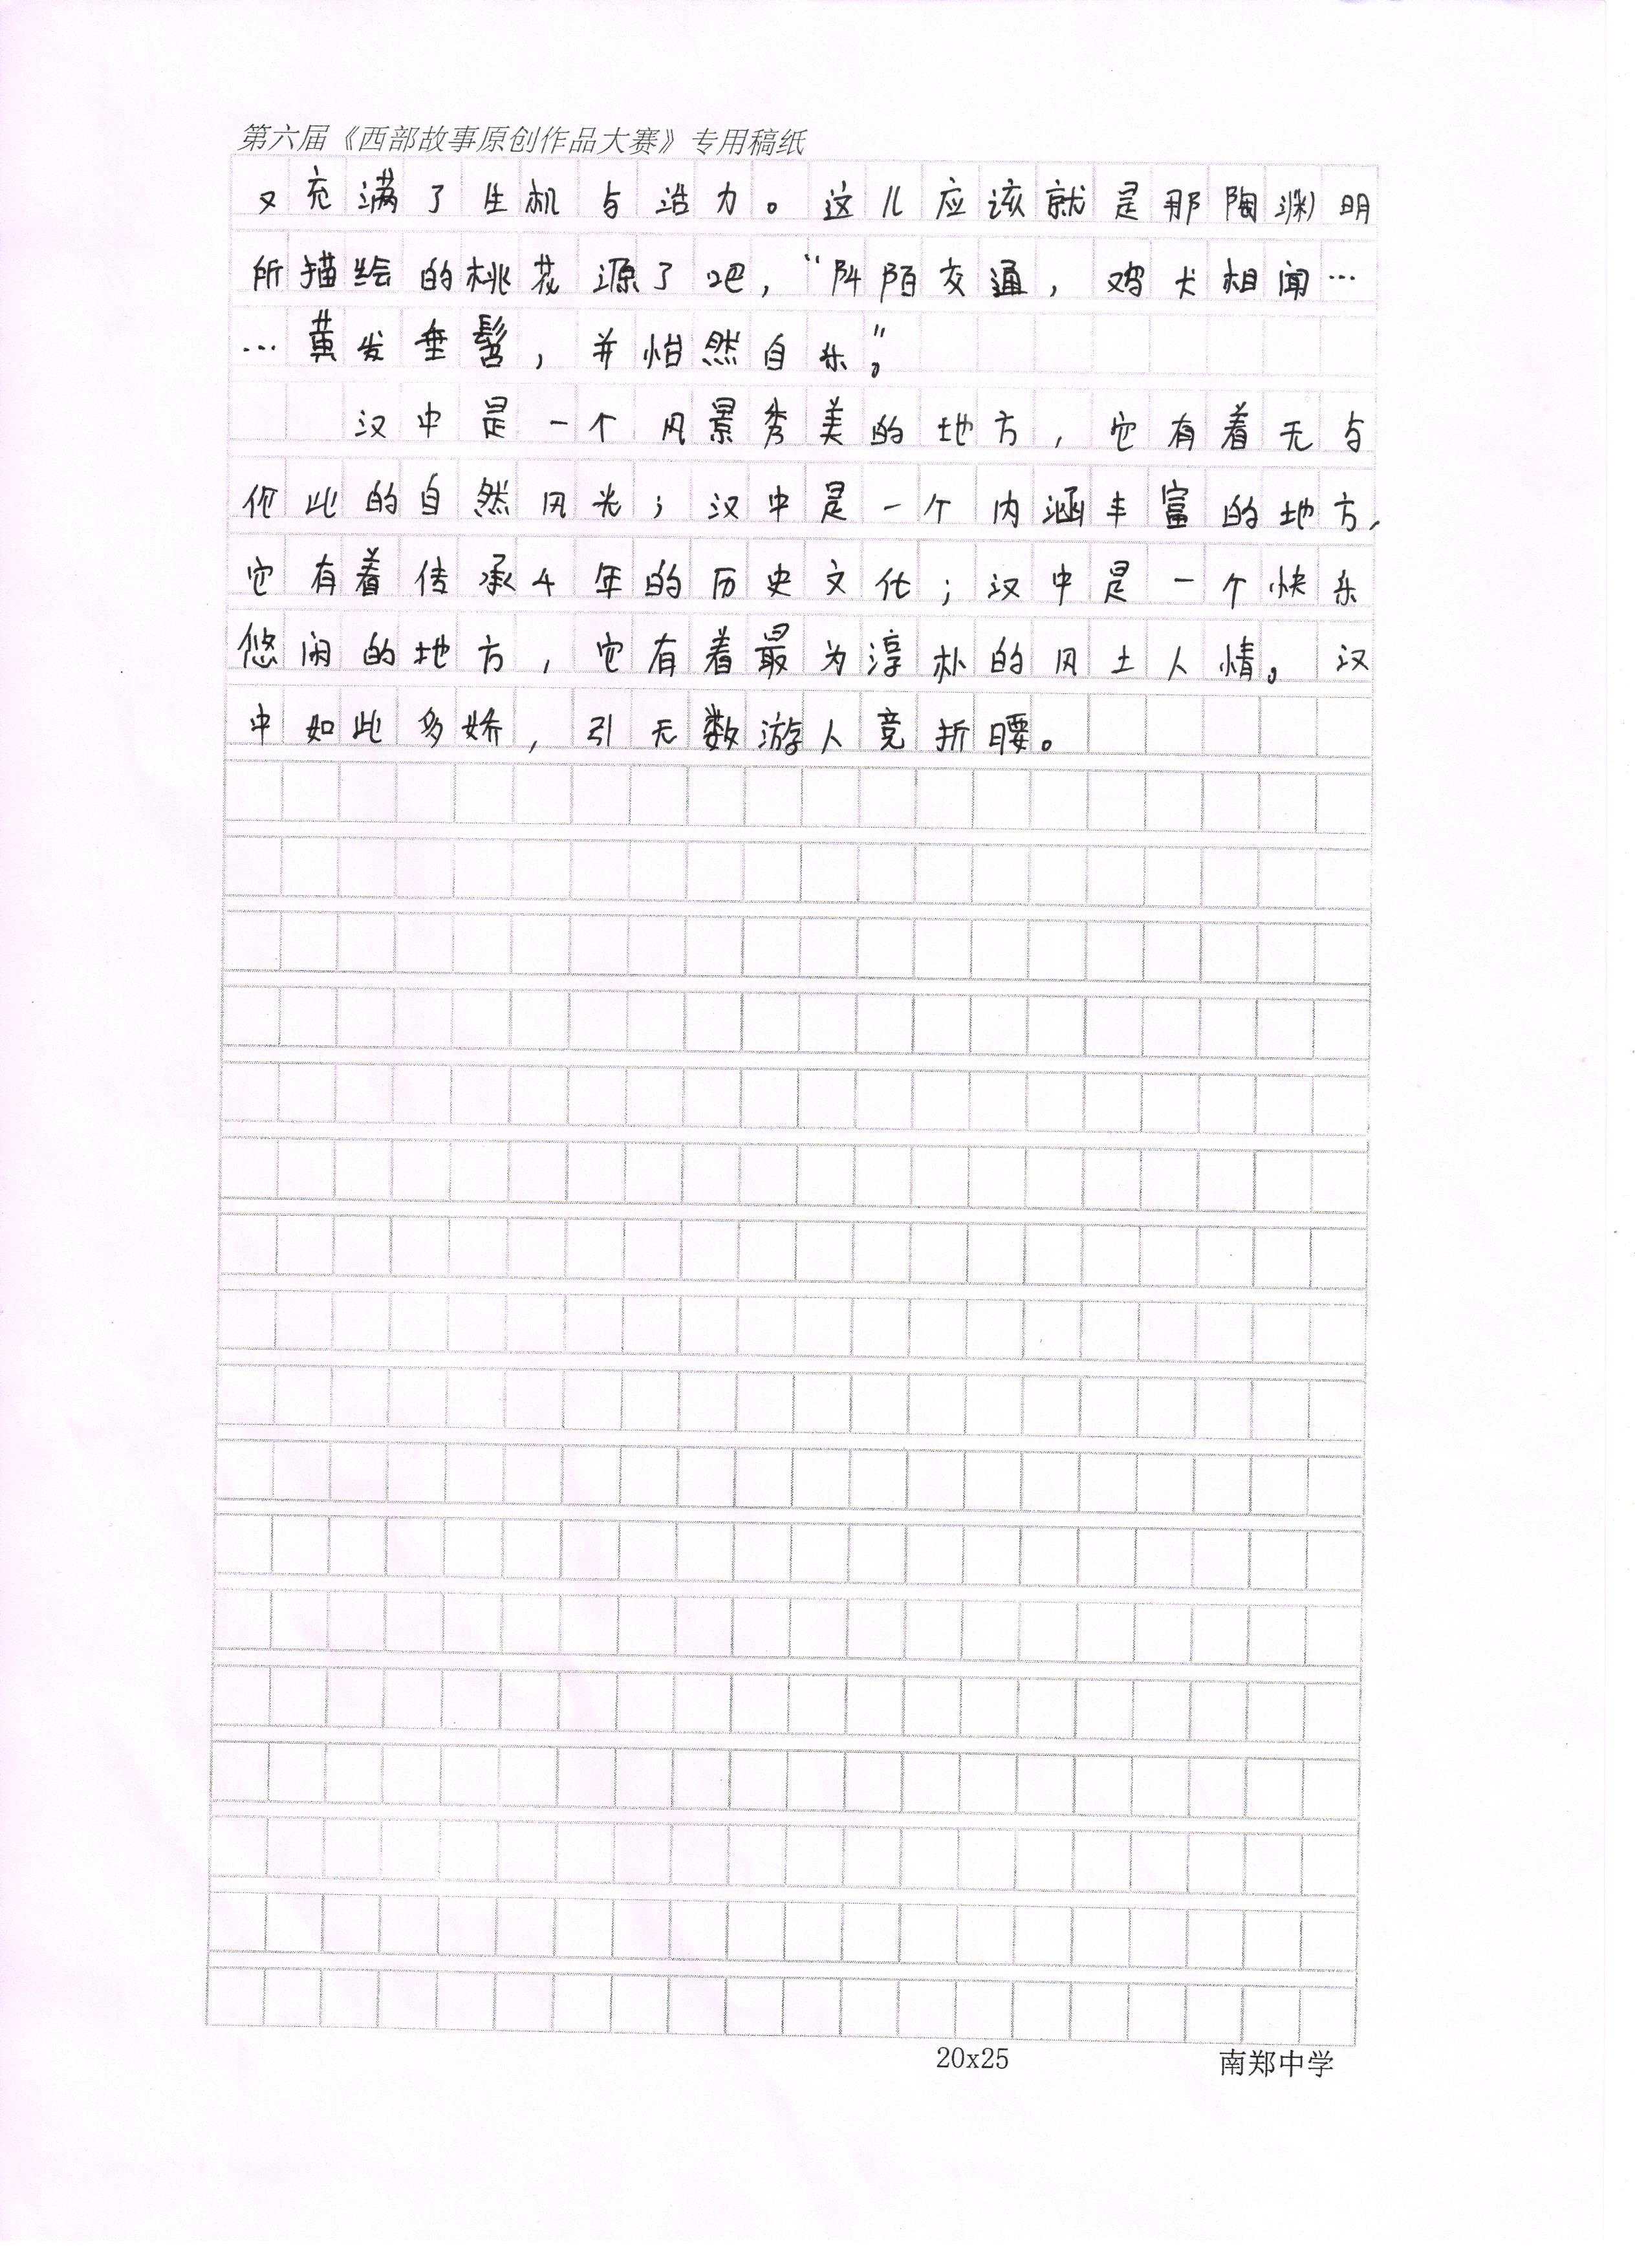 第六届《西部故事原创作品大赛》专用稿纸
又充满了生机与活力。这儿应该就是那陶渊明
所描绘的桃花源了吧，“阡陌交通，鸡犬相闻…
…黄发垂髫，并怡然自乐”。
汉中是一个风景秀美的地方，它有着无与
伦比的自然风光；汉中是一个内涵丰富的地方，
它有着传承千年的历史文化；汉中是一个快乐
悠闲的地方，它有着最为淳朴的风土人情。汉
中如此多娇，引无数游人竞折腰。
20x25 南郑中学